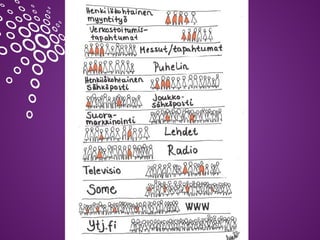 Henkilökohtainen
myyntityö
Verkostoitumis-
tapahtumat
Messut/tapahtumat
Puhelin
Henkilökohtainen
sähköposti
Joukko-
sähköposti
Suora-
markkinointi
Lehdet
Radio
Televisio
Some
WWW
Ytj.fi